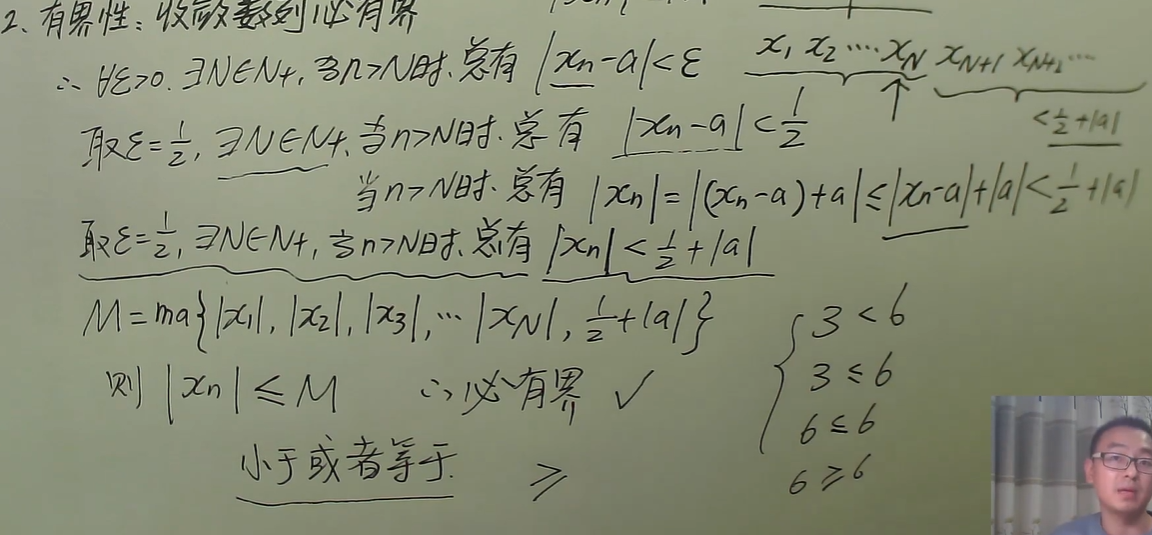 2、有界性：收敛数列必有界
∴ ∀ε>0. ∃N∈N+, 当n>N时. 总有 |xn-a|<ε
x1 x2 ···· xN xN+1 xN+2 ····
<1/2+|a|
取ε=1/2, ∃N∈N+, 当n>N时. 总有 |xn-a|<1/2
当n>N时. 总有 |xn|=|(xn-a)+a|≤|xn-a|+|a|<1/2+|a|
取ε=1/2, ∃N∈N+, 当n>N时. 总有 |xn|<1/2+|a|
M=ma{|x1|, |x2|, |x3|, ··· |xN|, 1/2+|a|}
则 |xn|≤M ∴必有界 ✓
小于或者等于. ≥
3<6
3≤6
6≤6
6≥6